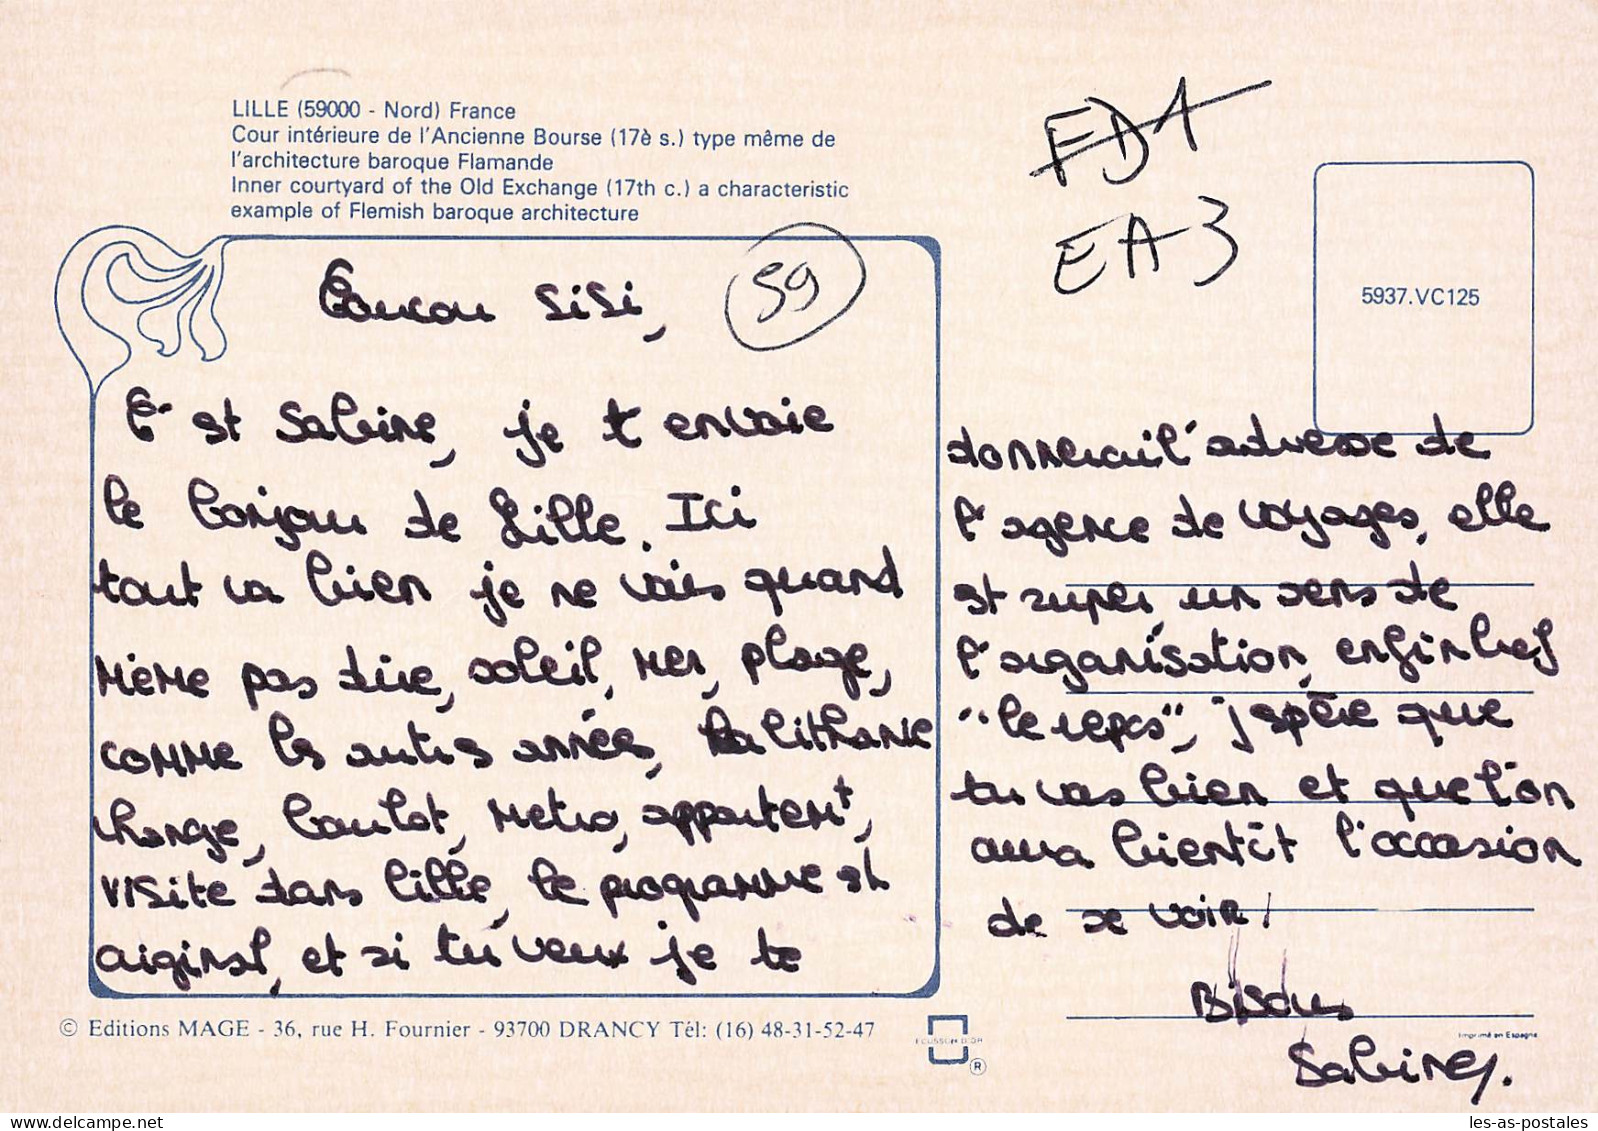 LILLE (59000 - Nord) France
Cour intérieure de l'Ancienne Bourse (17è s.) type même de
l'architecture baroque Flamande
Inner courtyard of the Old Exchange (17th c.) a characteristic
example of Flemish baroque architecture
ED1
EA3
59
5937.VC125
Coucou SiSi,
C'est Sabine, je t'envoie
le bonjour de Lille. Ici
tout va bien je ne vais quand
même pas dire, soleil, mer, plage,
comme les autres années, la lithanie
change, boulot, metro, appartem^t,
visite dans lille, le programme est
aiginal, et si tu veux je te
donnerai l'adresse de
l'agence de voyages, elle
est super, un sens de
l'organisation, enfin bref
"le repos", j'espère que
tu vas bien et que l'on
aura bientôt l'occasion
de se voir!
Bisous
Sabine.
© Editions MAGE - 36, rue H. Fournier - 93700 DRANCY Tél: (16) 48-31-52-47
ECUSSON D'OR
®
Imprimé en Espagne
les-as-postales